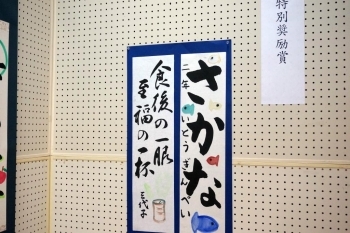 特別奨励賞
さかな
二年 いとうぎんぺい
食後の一服
至福の一杯